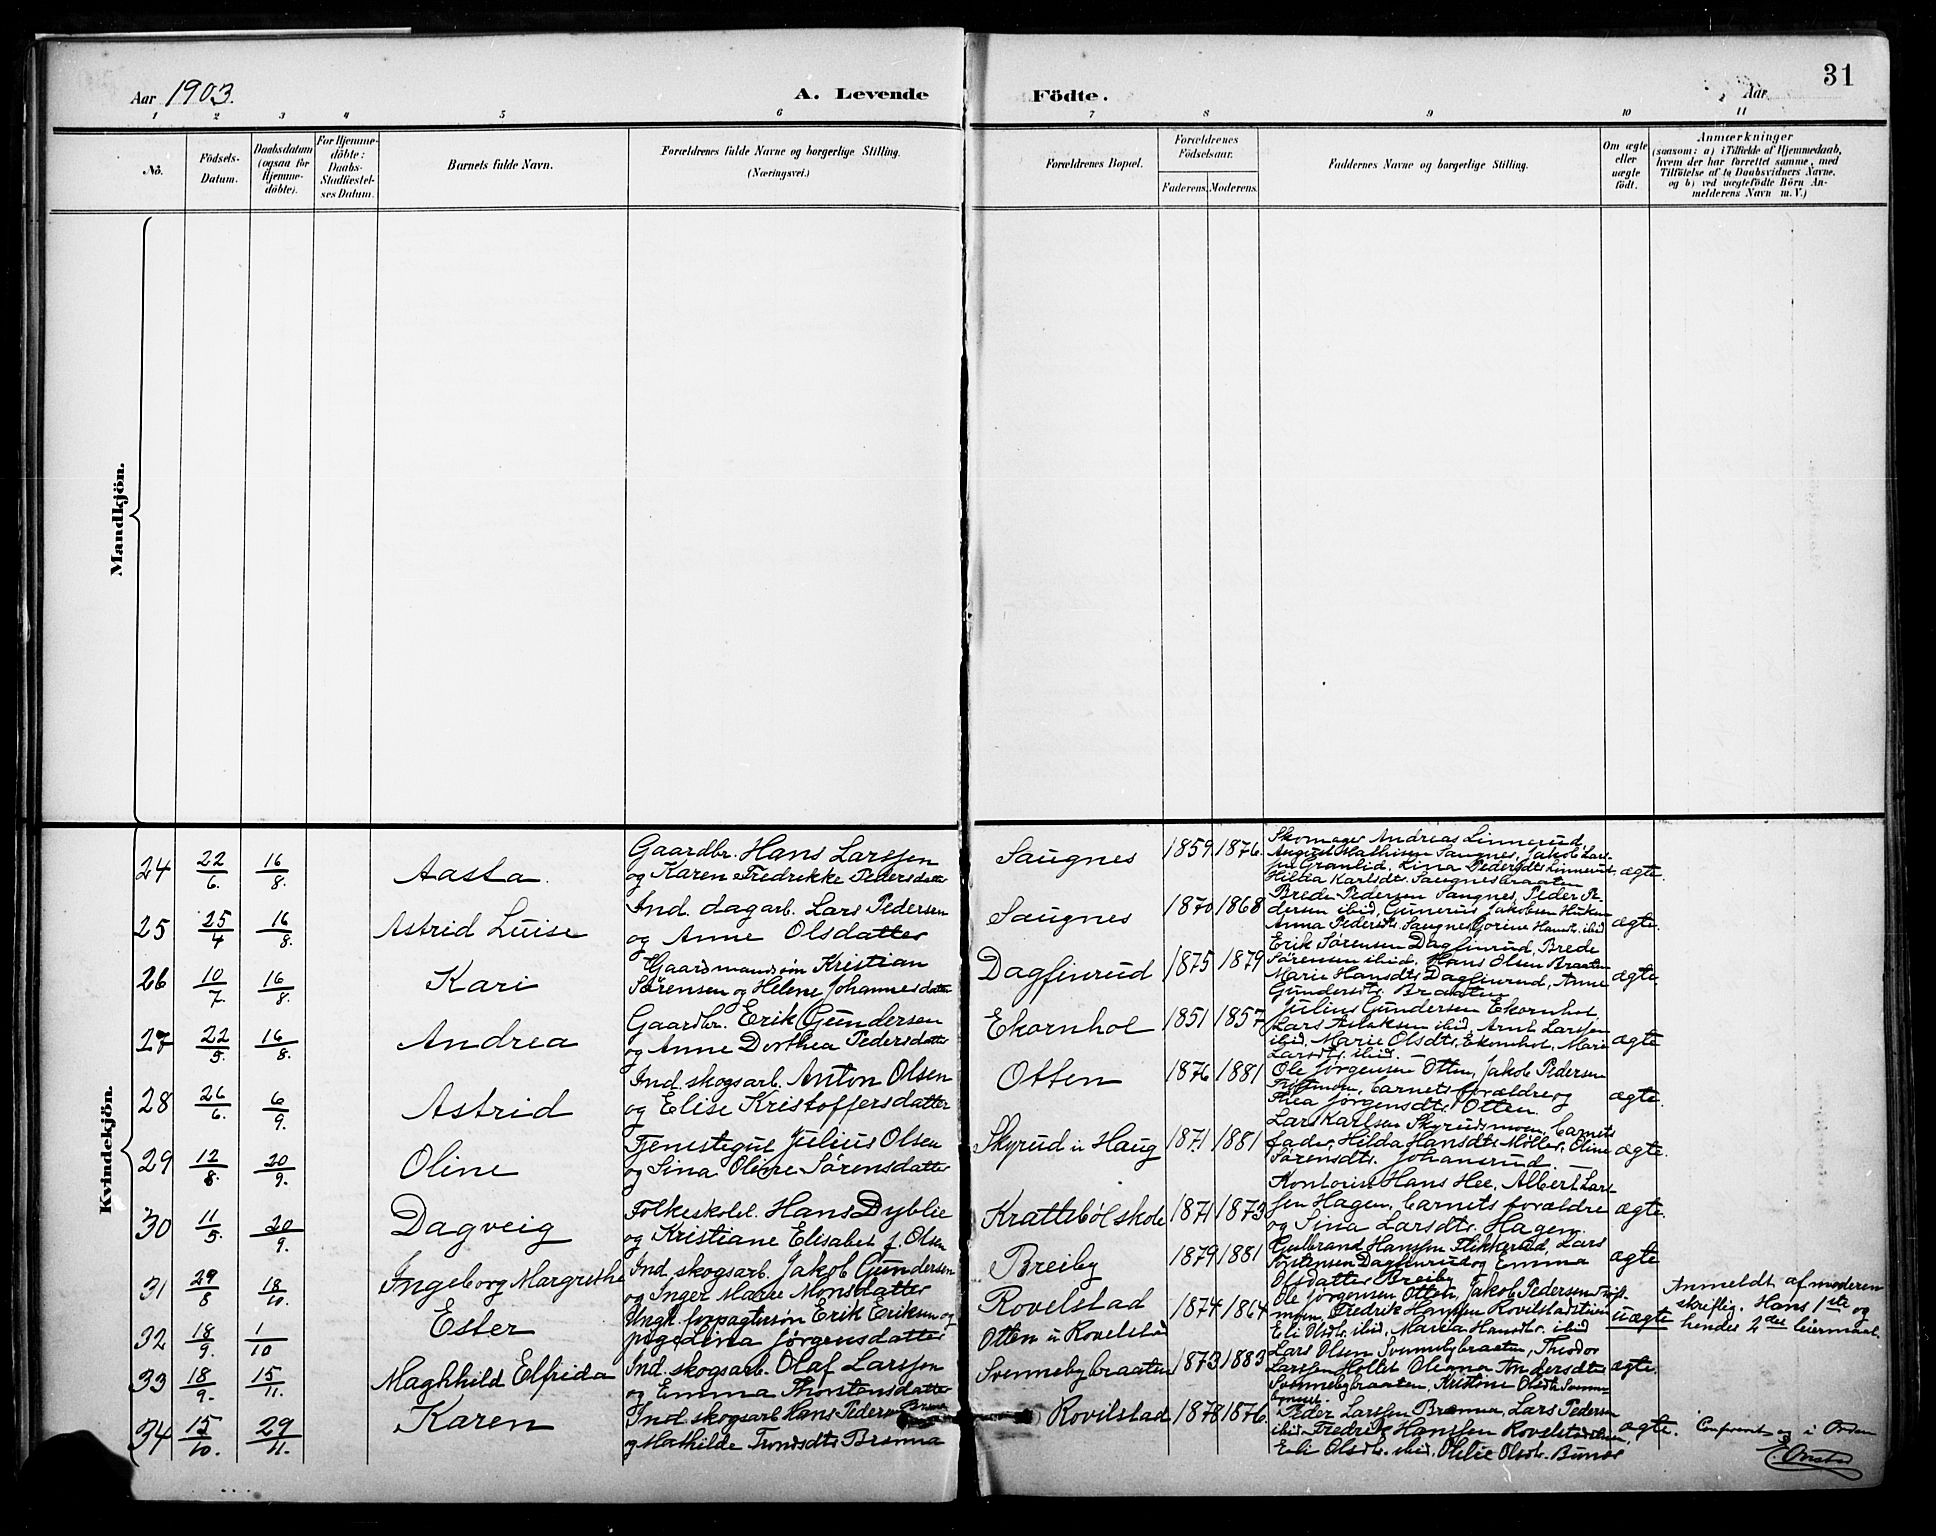 Aar 1903.
A. Levende Födte.
Aar
31
1 2 3 4 5 6 7 8 9 10 11
No.
Födsels-Datum.
Daabsdatum (ogsaa för Hjemme-döbte).
For Hjemme-döbte: Daabs-Stadfæstel-ses Datum.
Barnets fulde Navn.
Forældrenes fulde Navne og borgerlige Stilling. (Næringsvei.)
Forældrenes Bopæl.
Forældrenes Födselsaar.
Faderens. Moderens.
Faddernes Navne og borgerlige Stilling.
Om ægte eller uægte födt.
Anmærkninger
(saasom: a) i Tilfælde af Hjemmedaab, hvem der har forrettet samme, med Tilföielse af to Daabsvidners Navne, og b) ved uægtefödte Börn An-melderens Navn m. V.)
Mandkjön.
Kvindekjön.
24 22/6. 16/8. Aasta. Gaardbr. Hans Larssen og Karen Fredrikke Pedersdatter Saugnes 1859. 1876. Skomager Andreas Linnerud August Mathisen Saugnes, Jakob Lars-sen Granlid, Lina Pedersdtr Linnerud, Hilda Karlsdt. Saugnesbraaten ægte.
25 25/4 16/8. Astrid Luise Ind. dagarb. Lars Pedersen og Anne Olsdatter Saugnes 1870 1868 Brede Pedersen Saugnes, Peder Pe-dersen ibid, Gunerius Jakobsen Huken Anna Pedersdtr Saugnes, Gorine Hansdt. ibid ægte.
26 10/7. 16/8. Kari Gaardmandssøn Kristian Sørensen og Helene Johannesdatter Dagfinrud 1875 1879 Erik Sørensen Dagfinrud, Brede Sørensen ibid, Hans Olsen Braaten Marie Hansdtr Dagfinrud, Anne Gundersdtr. Braaten ægte.
27 22/5. 16/8. Andrea Gaardbr. Erik Gundersen og Anne Dorthea Pedersdatter Ekornhol 1851 1857 Julius Gundersen Ekornhol, Lars Aslaksen ibid, Arnt Larssen ibid, Marie Olsdtr. Ekornhol, Marie Larsdtr. ibid. ægte
28 26/6. 6/9. Astrid Ind. skogsarb. Anton Olsen og Elise Kristoffersdatter Otten 1876 1881 Ole Jørgensen Otten, Jakob Pedersen Triftmoen, barnets forældre og Thea Jørgensdtr. Otten. ægte.
29 12/8. 20/9. Oline Tjenestegut Julius Olsen og Sina Oline Sørensdatter Skyrud u Haug 1871 1881 Lars Karlsen Skyrudsmoen, barnets fader, Hilda Hansdtr Møller, Oline Sørensdtr. Johanerud. ægte.
30 11/5. 20/9. Dagveig Folkeskolel. Hans Dyblie og Kristiane Elisabet f. Olsen Krattebøl skole 1871 1873 Kontorist Hans Hee, Albert Lars-sen Hagen, barnets forældre og Sina Larsdtr. Hagen. ægte.
31 29/8 18/10. Ingeborg Margrethe Ind. skogsarb. Jakob Gundersen og Inger Marie Monsdatter Breiby 1879 1881 Gulbrand Hanssen Flikkerud, Lars Torstensen Dagfinrud og Emma Olsdatter Breiby ægte
32 18/9. 1/10 Ester Ungk. forpagtersøn Erik Eriksen og pige Lina Jørgensdatter Rovelstad Otten u Rovelstad 1874 1864 Ole Jørgensen Otten, Jakob Pedersen Trift-moen, Fredrik Hanssen Rovilstadstuen Eli Olsdtr. ibid, Maria Hansdtr. ibid uægte Anmeldt af moderen skriftlig. Hans 1ste og hendes 2det leiermaal.
33 18/9. 15/11. Maghhild Elfrida Ind. skogsarb. Olaf Larssen og Emma Thorstensdatter Svennebybraaten 1873 1883 Lars Olsen Svennebybraaten, Theodor Larssen Hollet Oliana Andersdtr Svennebybraaten, Kristine Olsdtr ægte.
34 15/10. 29/11. Karen Ind. skogsarb Hans Pedersen Brenna og Mathilde Trondsdtr Brenna Rovilstad 1878 1876. Peder Larssen Brenna, Lars Pedersen ibid Fredrik Hanssen Rovelstadstuen, Eli Olsdtr. ibid, Olsdtr. ægte. Conferert og i Orden